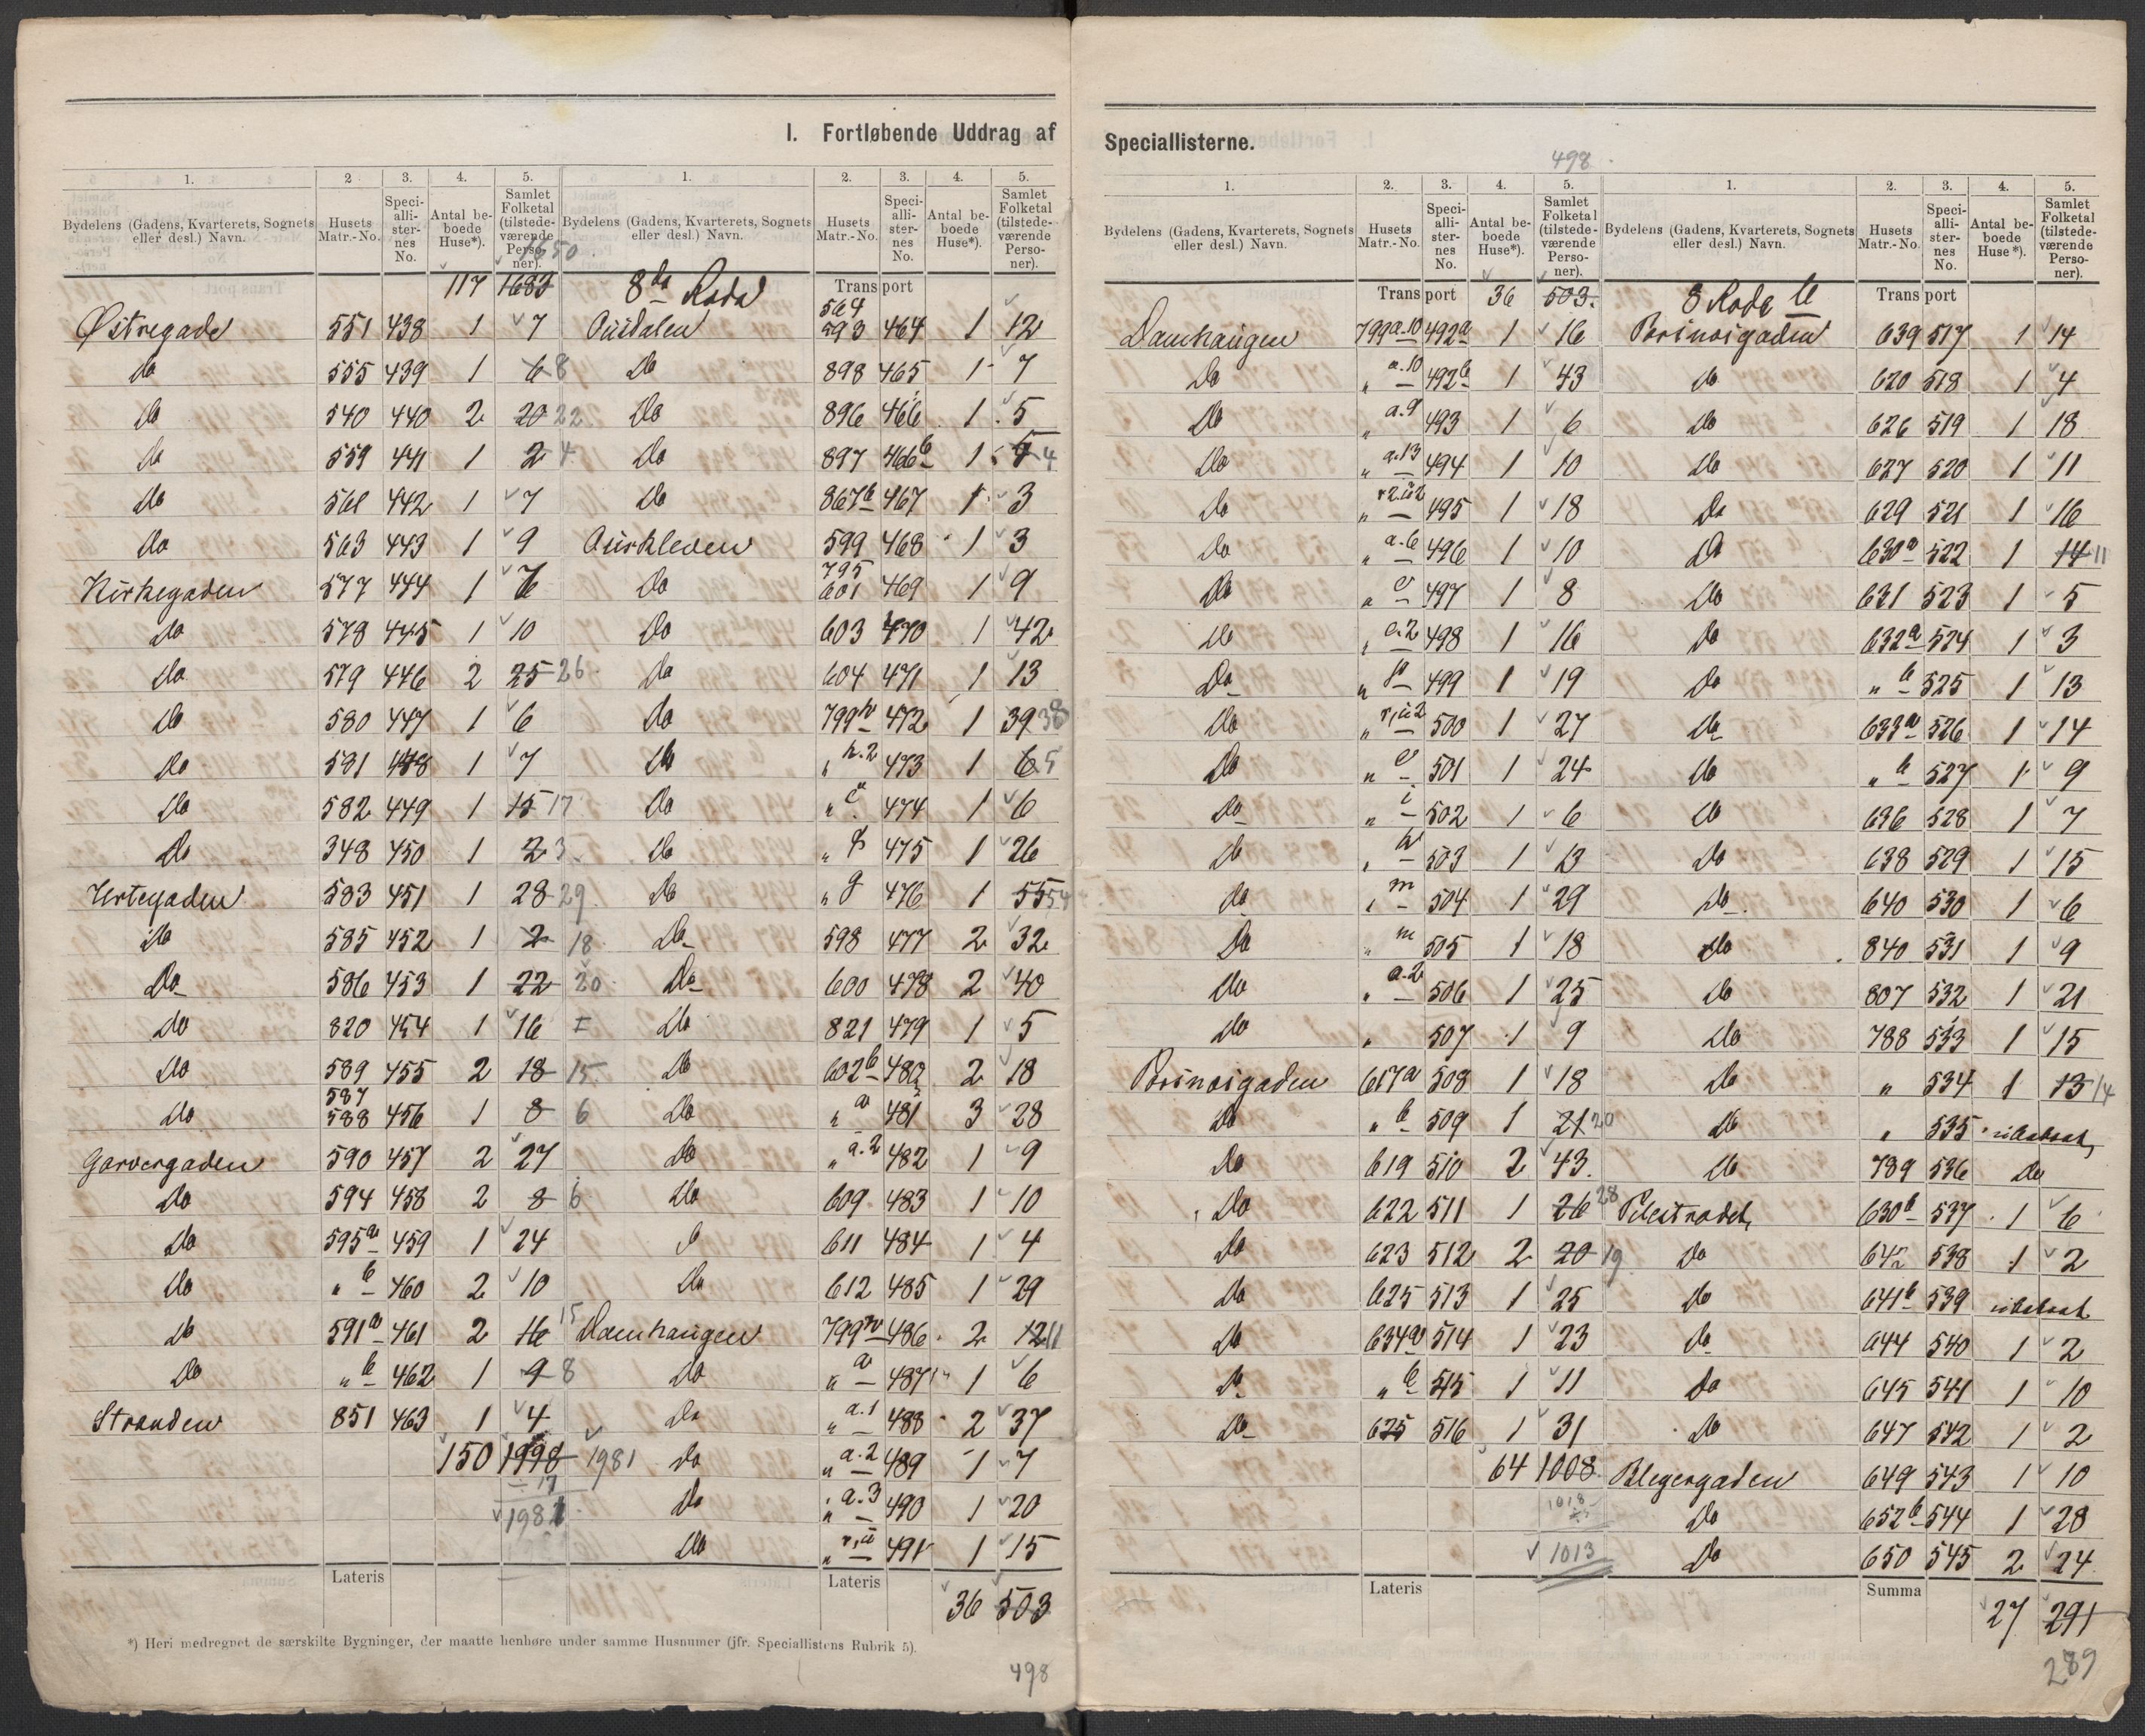 I. Fortløbende Uddrag af
1. 2. 3. 4. 5.
Bydelens (Gadens, Kvarterets, Sognets eller desl.) Navn. Husets Matr.-No. Speci-alli-ster-nes No. Antal be-boede Huse*). Samlet Folketal (tilstede-værende Perso-ner).
1650
117 1683
Østregade 551 438 1 7
do 555 439 1 6 8
do 540 440 2 20 22
do 559 441 1 2 4
do 561 442 1 7
do 563 443 1 9
Kirkegaden 577 444 1 6
do 578 445 1 10
do 579 446 2 25 26
do 580 447 1 6
do 581 448 1 7
do 582 449 1 15 17
do 348 450 1 2 3
Urtegaden 583 451 1 28 29
do 585 452 1 2 18
do 586 453 1 22 20
do 820 454 1 16
do 589 455 2 18 15
do 587 588 456 1 8 6
Garvergaden 590 457 2 27
do 594 458 2 8 6
do 595a 459 1 24
do " b 460 2 10
do 591a 461 2 16 15
do " b 462 1 9 8
Stranden 851 463 1 4
150 1998 1981
17
1981
Lateris
1. 2. 3. 4. 5.
Bydelens (Gadens, Kvarterets, Sognets eller desl.) Navn. Husets Matr.-No. Speci-alli-ster-nes No. Antal be-boede Huse*). Samlet Folketal (tilstede-værende Perso-ner).
8da Rode Transport
564
593 464 1 12
do 898 465 1 7
do 896 466 1 5
do 897 466b 1 5 4
do 867b 467 1 3
599 468 1 3
do 795 601 469 1 9
do 603 470 1 42
do 604 471 1 13
do 799h 472 1 39 38
do " h.2 473 1 6 5
do " 474 1 6
do " 475 1 26
do " g 476 1 55 54
do 598 477 2 32
do 600 478 2 40
do 821 479 1 5
do 602b 480 2 18
do " a 481 3 28
do " a.2 482 1 9
do 609 483 1 10
611 484 1 4
do 612 485 1 29
Damhaugen 486 2 12 11
do " a 487 1 6
do " a.1 488 2 37
do " a.2 489 1 7
do " a.3 490 1 20
do " 491 1 15
Lateris
36 503
*) Heri medregnet de særskilte Bygninger, der maatte henhøre under samme Husnumer (jfr. Speciallistens Rubrik 5).
498
Speciallisterne.
498
1. 2. 3. 4. 5.
Bydelens (Gadens, Kvarterets, Sognets eller desl.) Navn. Husets Matr.-No. Speci-alli-ster-nes No. Antal be-boede Huse*). Samlet Folketal (tilstede-værende Perso-ner).
Transport 36 503
Damhaugen 799a.10 492a 1 16
do " a.10 492b 1 43
do " a.9 493 1 6
do " a.13 494 1 10
do " 495 1 18
do " a.6 496 1 10
do " e 497 1 8
do " e.2 498 1 16
do " 499 1 19
do " 500 1 27
do " 501 1 24
do " i 502 1 6
do " 503 1 13
do " m 504 1 29
do " m 505 1 18
do " a.2 506 1 25
do " 507 1 9
Prinsigaden 617a 508 1 18
do " b 509 1 21 20
do 619 510 2 43
do 622 511 1 26 28
do 623 512 2 20 19
do 625 513 1 25
do 634a 514 1 23
do " b 515 1 11
do 635 516 1 31
64 1008
1018
1013
Lateris
1. 2. 3. 4. 5.
Bydelens (Gadens, Kvarterets, Sognets eller desl.) Navn. Husets Matr.-No. Speci-alli-ster-nes No. Antal be-boede Huse*). Samlet Folketal (tilstede-værende Perso-ner).
8 Rode b Transport
Prinsigaden 639 517 1 14
do 620 518 1 4
do 626 519 1 18
do 627 520 1 11
do 629 521 1 16
do 630a 522 1 14 11
do 631 523 1 5
do 632a 524 1 3
do " b 525 1 13
do 633a 526 1 14
do " b 527 1 9
do 636 528 1 7
do 638 529 1 15
do 640 530 1 6
do 840 531 1 9
do 807 532 1 21
do 788 533 1 15
do " 534 1 13 14
do " 535 ubeboet
do 789 536 do
Pilestrædet 630b 537 1 6
do 538 1 2
do 641b 539 ubeboet
do 644 540 1 2
do 645 541 1 10
do 647 542 1 2
Blegergaden 649 543 1 10
do 652b 544 1 28
do 650 545 2 24
Summa
27 291
289